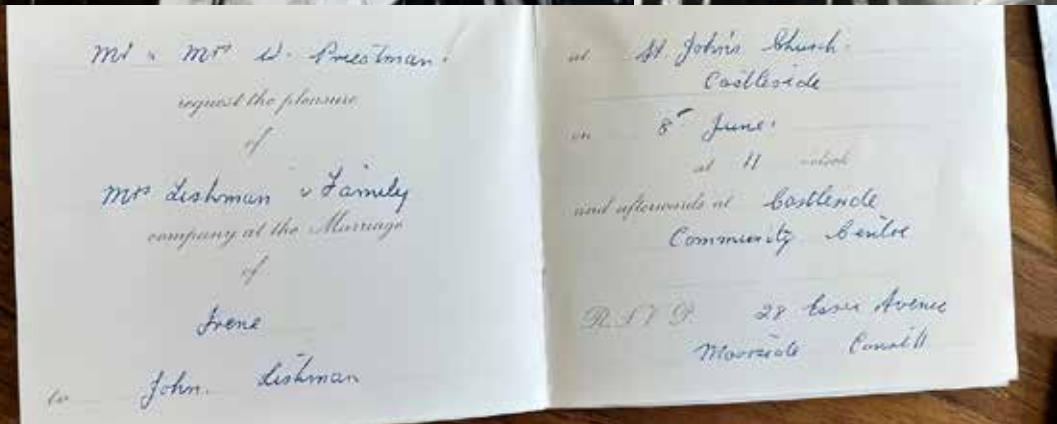 Mr & Mrs W. Priestman.
request the pleasure
of
Mrs Lishman & Family
company at the Marriage
of
Irene
to John. Lishman
at St. John's Church.
Castleside
on 8th June.
at 11 o'clock
and afterwards at Castleside
Community Centre
R.S.V.P. 28 Essex Avenue
Moorside Consett